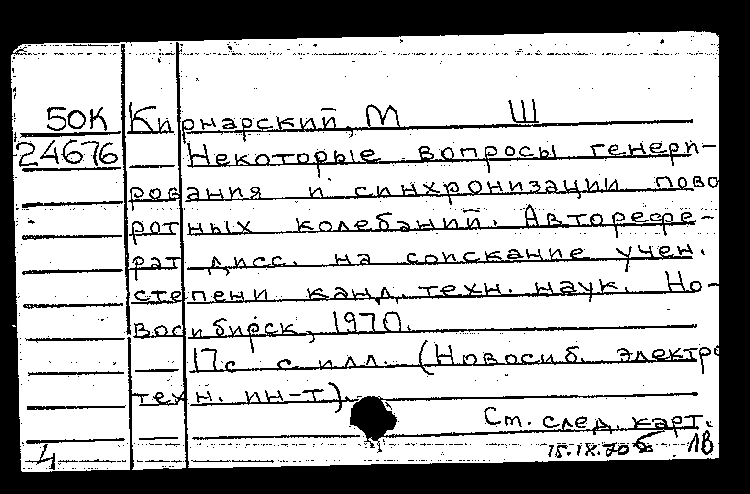 50К Кирнарский, М Ш
24676 Некоторые вопросы генери-
рования и синхронизации пово
ротных колебаний. Авторефе-
рат дисс. на соискание учен.
степени канд. техн. наук. Но-
восибирск, 1970.
17с с илл. (Новосиб. электро
техн. ин-т).
См. след. карт.
4 15.IX.70 1В